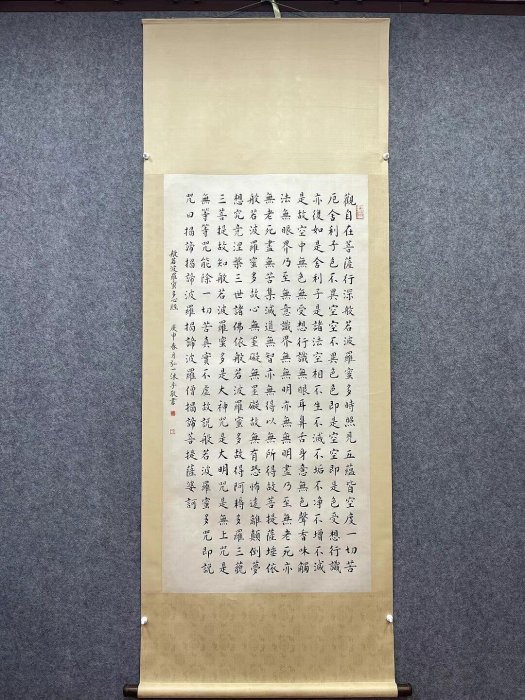 觀自在菩薩行深般若波羅蜜多時照見五蘊皆空度一切苦
厄舍利子色不異空空不異色色即是空空即是色受想行識
亦復如是舍利子是諸法空相不生不滅不垢不淨不增不減
是故空中無色無受想行識無眼耳鼻舌身意無色聲香味觸
法無眼界乃至無意識界無無明亦無無明盡乃至無老死亦
無老死盡無苦集滅道無智亦無得以無所得故菩提薩埵依
般若波羅蜜多故心無罣礙無罣礙故無有恐怖遠離顛倒夢
想究竟涅槃三世諸佛依般若波羅蜜多故得阿耨多羅三藐
三菩提故知般若波羅蜜多是大神咒是大明咒是無上咒是
無等等咒能除一切苦真實不虛故說般若波羅蜜多咒即說
咒曰揭諦揭諦波羅揭諦波羅僧揭諦菩提薩婆訶
般若波羅蜜多心經 庚申春月弘一沐手敬書